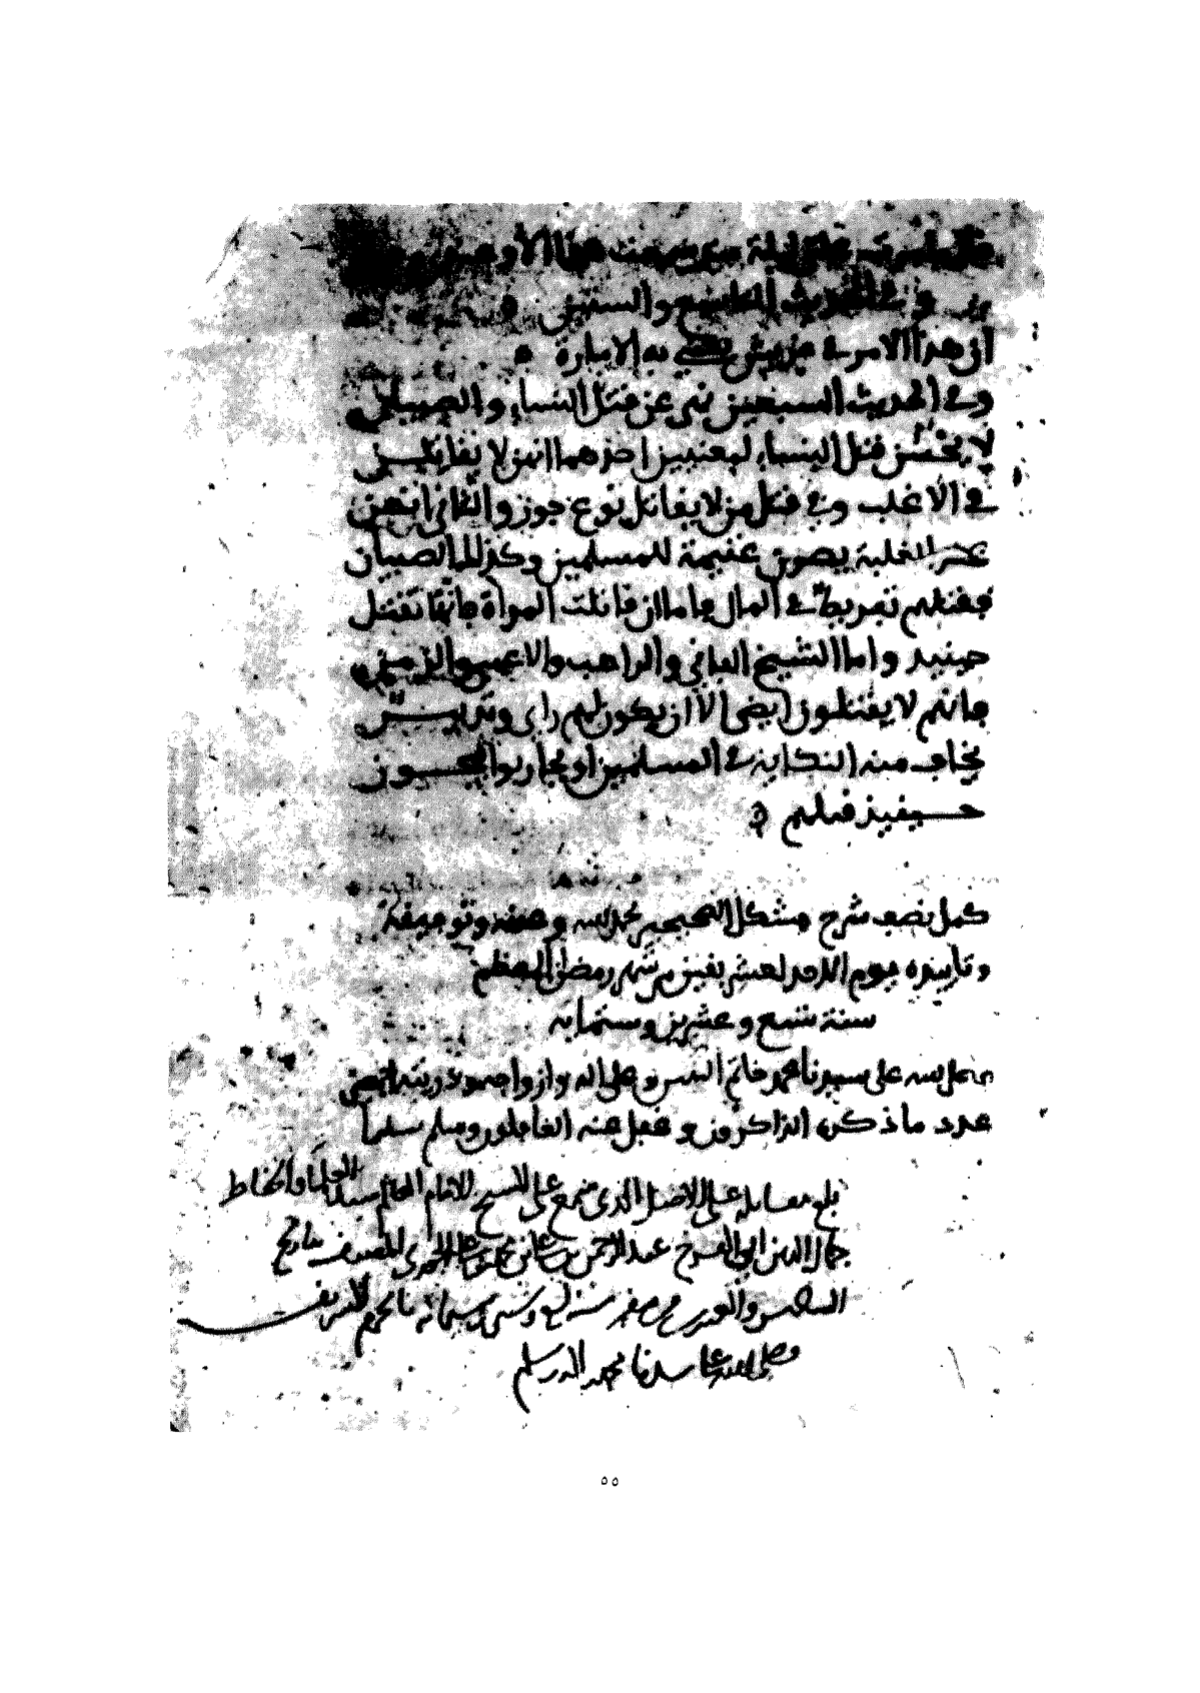 وفي الحديث التاسع والستين
ان هذا الامر في قريش يعني به الامارة
وفي الحديث السبعين نهى عن قتل النساء والصبيان
لا يحسن قتل النساء لمعنيين احدهما انهن لا يقاتلن
في الاغلب وفي قتل من لا يقاتل نوع جور والثاني انهن
عند الغلبة يصرن غنيمة للمسلمين وكذلك الصبيان
فقتلهم تفريط في المال فاما ان قاتلت المرأة فانها تقتل
حينئذ واما الشيخ الفاني والراهب والاعمى والزمنى
فانهم لا يقتلون ايضى الا ان يكون لهم راي وتدبير
يخاف منه النكاية في المسلمين او يحاربوا فيجوز
حينئذ قتلهم
كمل نصف شرح مشكل الصحيحين بحمد الله وعونه وتوفيقه
وتاييده يوم الاحد لعشر بقين من شهر رمضان المعظم
سنة تسع وعشرين وستماية
صلى الله على سيدنا محمد خاتم النبيين وعلى اله وازواجه وذريته
عدد ما ذكره الذاكرون وغفل عنه الغافلون وسلم تسليما
بلغ مقابلة على الاصل الذي على الشيخ الامام العالم سيد العلماء والحفاظ
جمال الدين ابي الفرج عبد الرحمن بن علي بن محمد بن علي الجوزي المصنف بتاريخ
السادس والعشرين من صفر سنة وستمائة بالحرم الشريف
وصلى الله على سيدنا محمد اله وسلم
٥٥